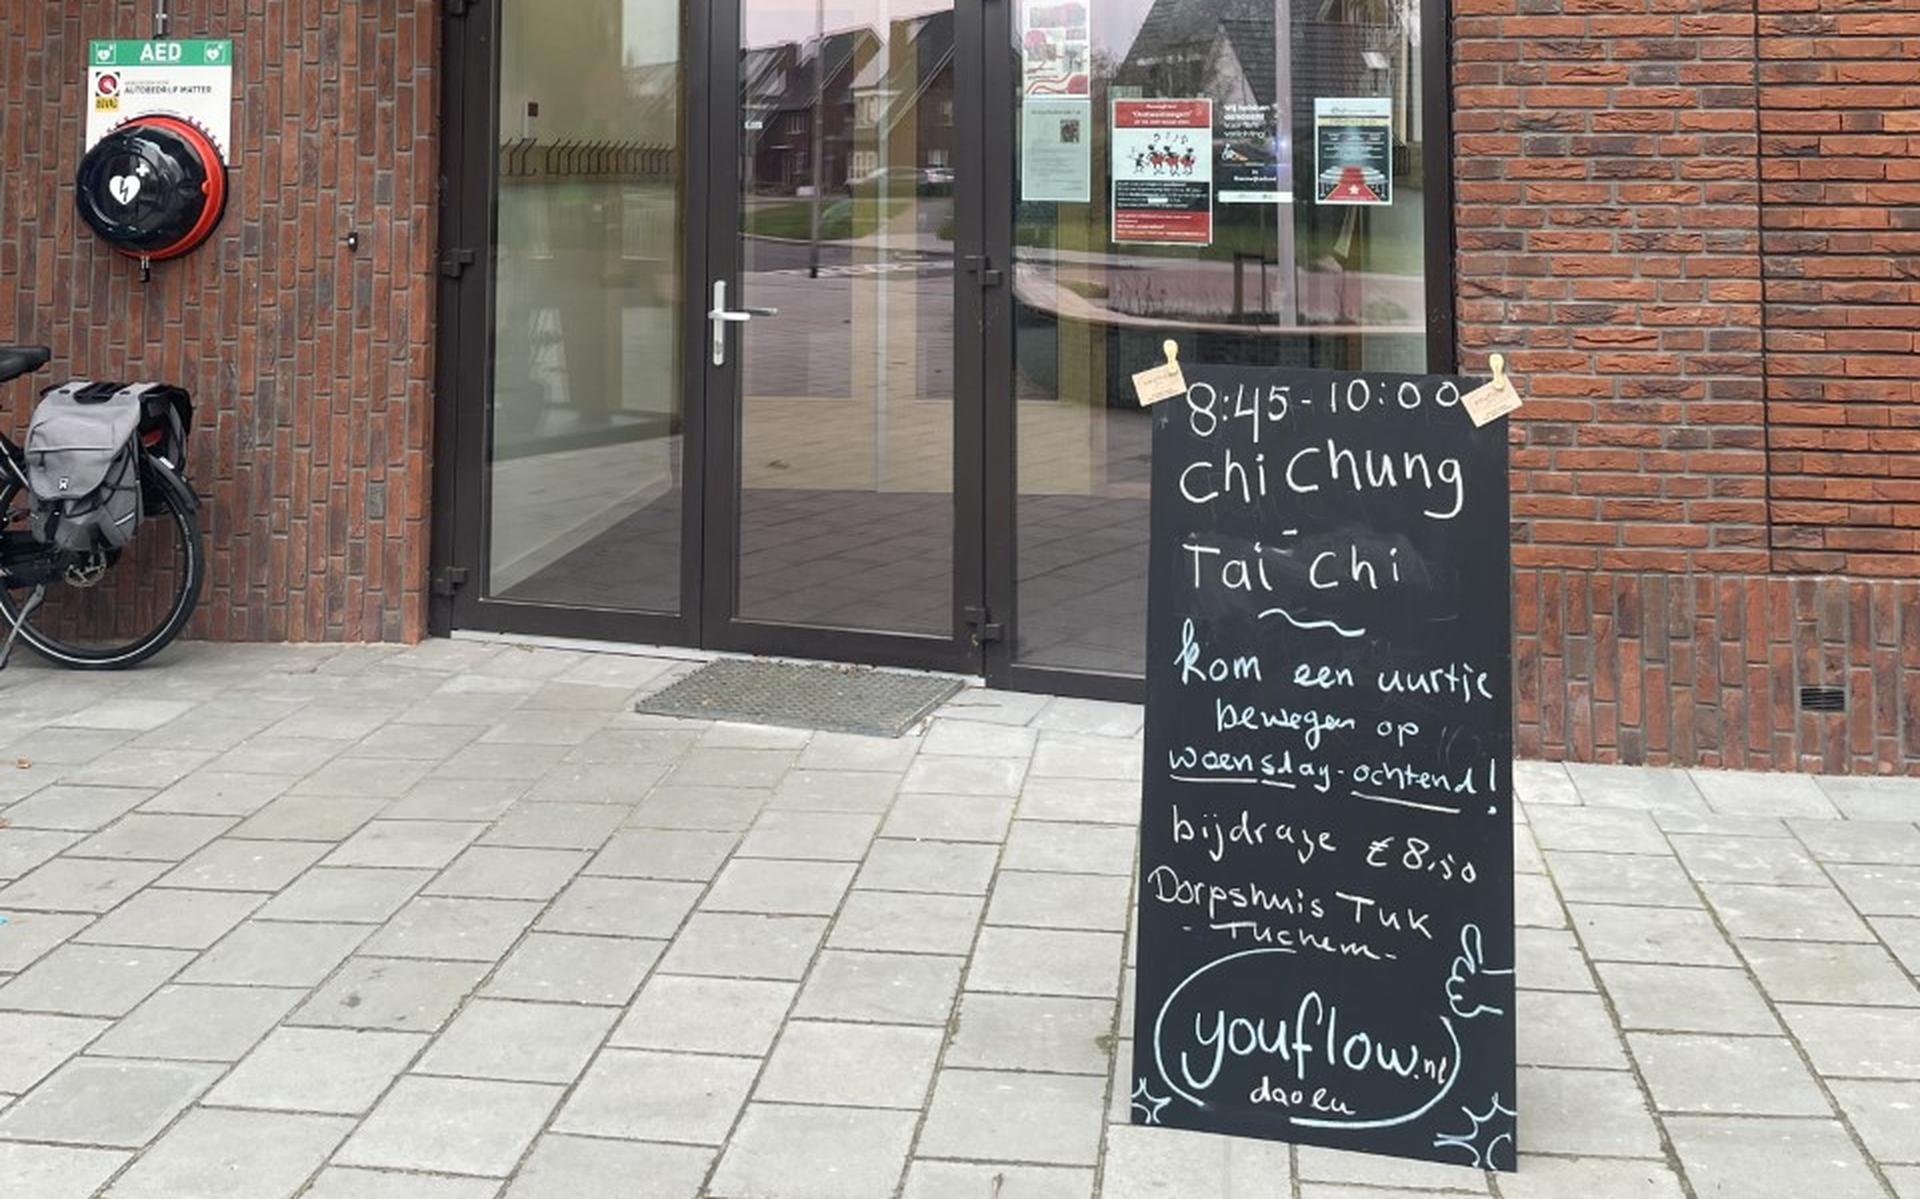 AED
AUTOBEDRIJF MATTER
BOVAG
8:45-10:00
chi chung
-
Tai chi
kom een uurtje
bewegen op
woensdag-ochtend!
bijdrage € 8,50
Dorpshuis Tuk
- Tuchem -
youflow.nl
daolu